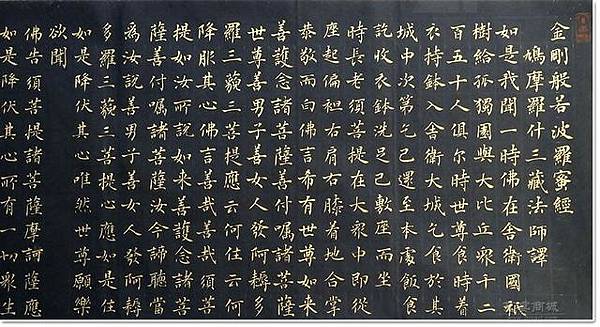 金剛般若波羅蜜經
鳩摩羅什三藏法師譯
如是我聞一時佛在舍衛國祇
樹給孤獨園與大比丘眾千二
百五十人俱尔時世尊食時着
衣持鉢入舍衛大城乞食於其
城中次第乞已還至本處飯食
訖收衣鉢洗足已敷座而坐
時長老須菩提在大眾中即從
座起偏袒右肩右膝着地合掌
恭敬而白佛言希有世尊如來
善護念諸菩薩善付囑諸菩薩
世尊善男子善女人發阿耨多
羅三藐三菩提應云何住云何
降伏其心佛言善哉善哉須菩
提如汝所說如來善護念諸菩
薩善付囑諸菩薩汝今諦聽當
為汝說善男子善女人發阿耨
多羅三藐三菩提心應如是住
如是降伏其心唯然世尊願樂
欲聞
佛告須菩提諸菩薩摩訶薩應
如是降伏其心所有一切眾生
商城